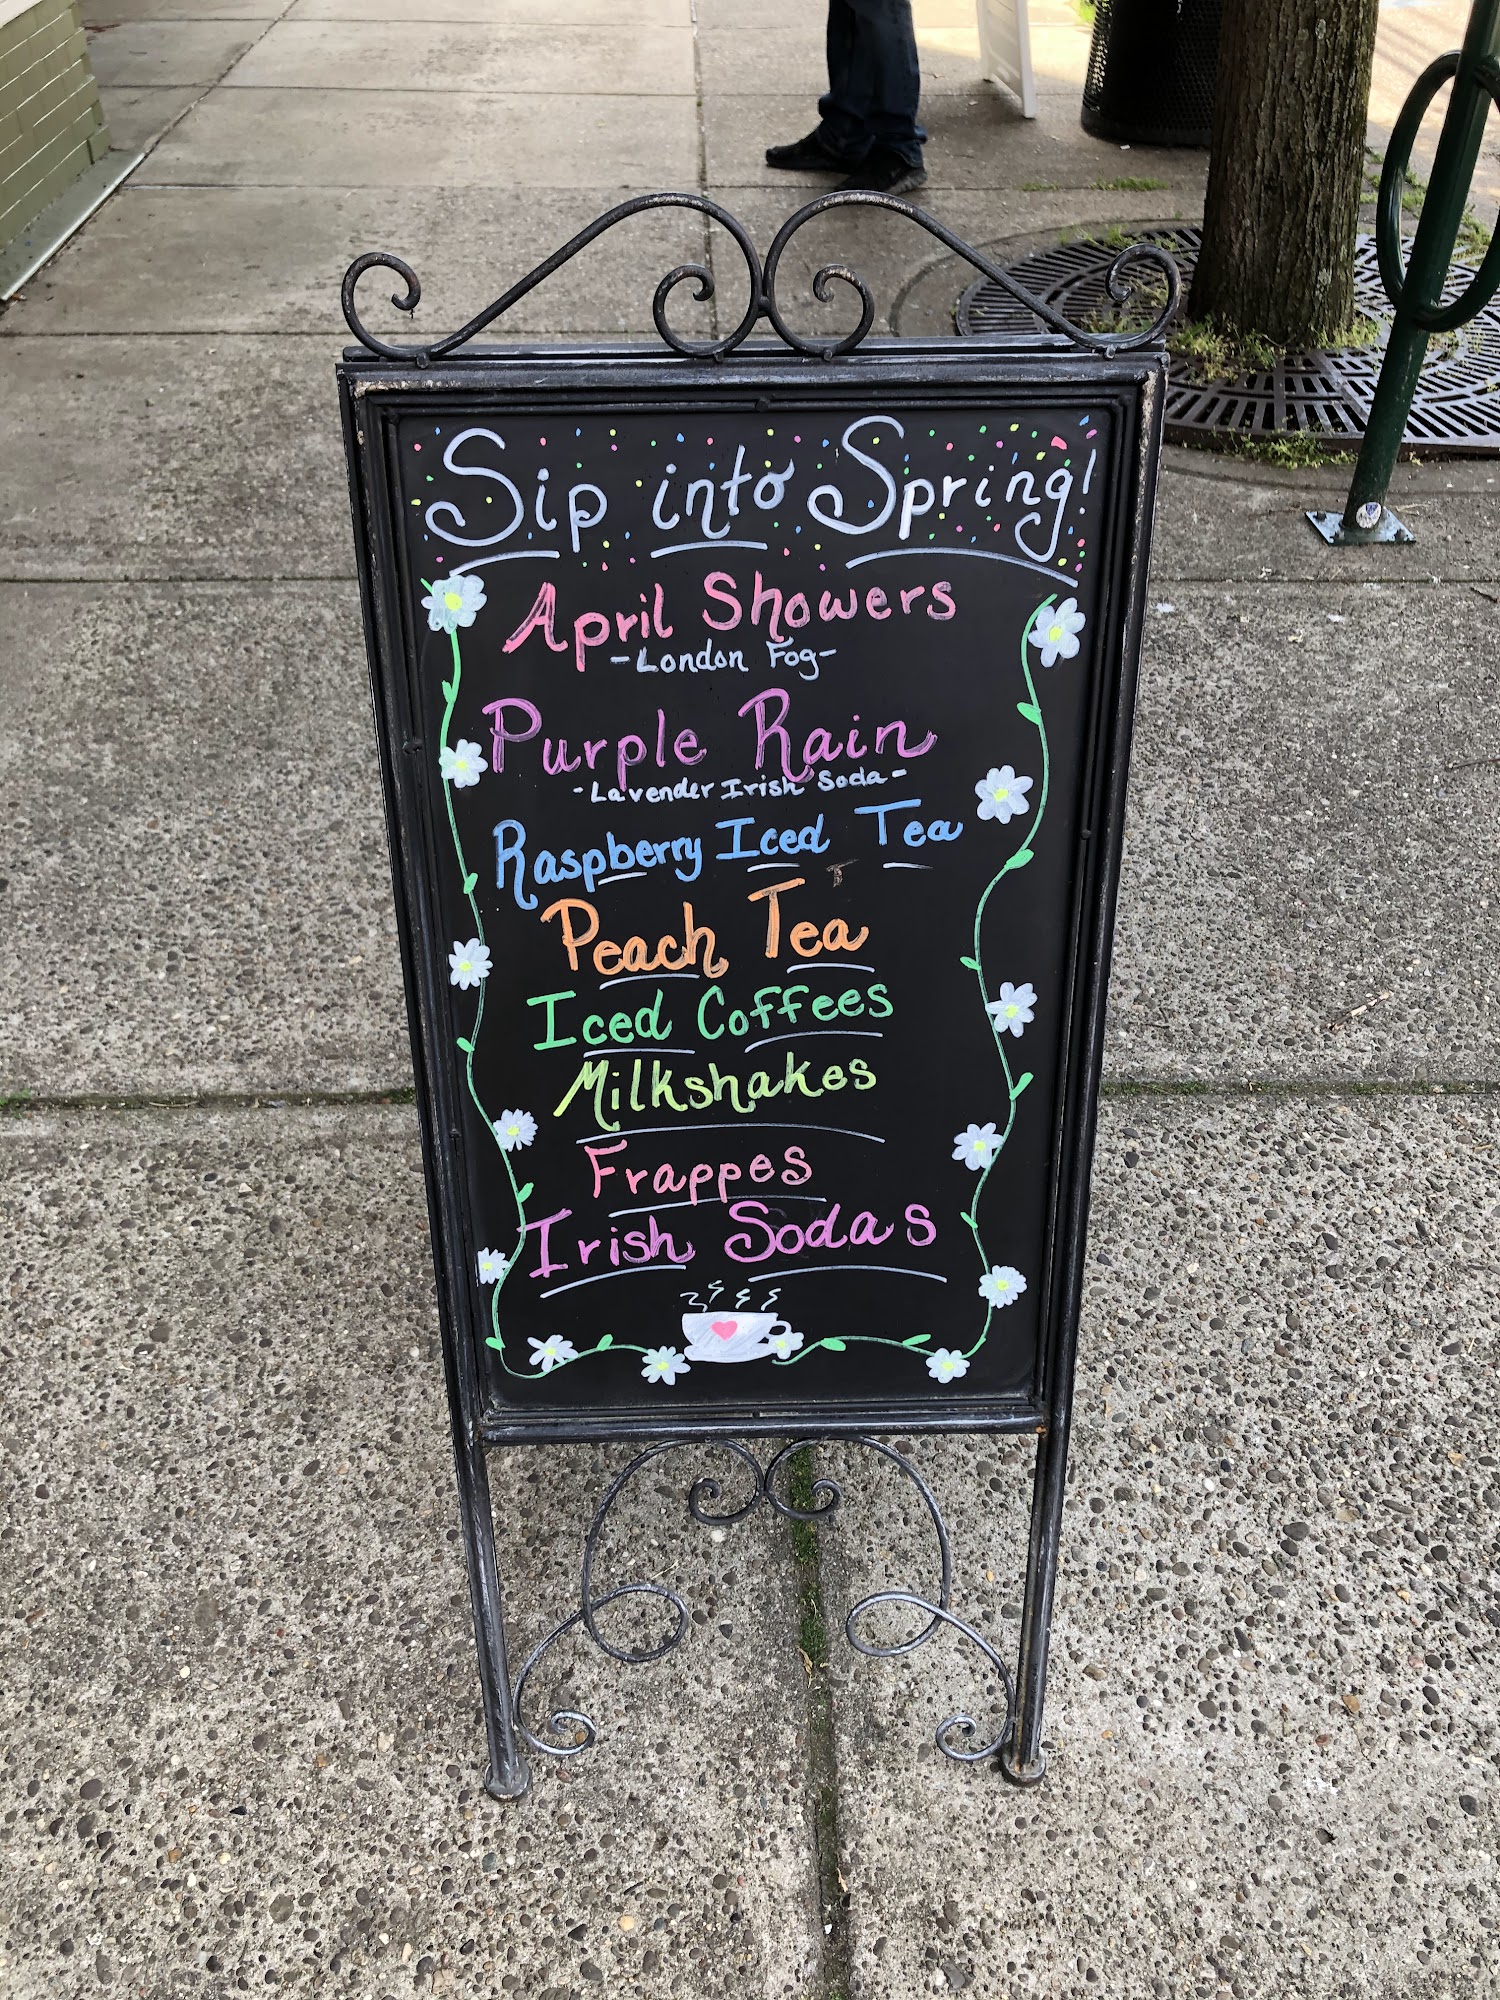 Sip into Spring!
April Showers
-London Fog-
Purple Rain
-Lavender Irish Soda-
Raspberry Iced Tea
Peach Tea
Iced Coffees
Milkshakes
Frappes
Irish Sodas